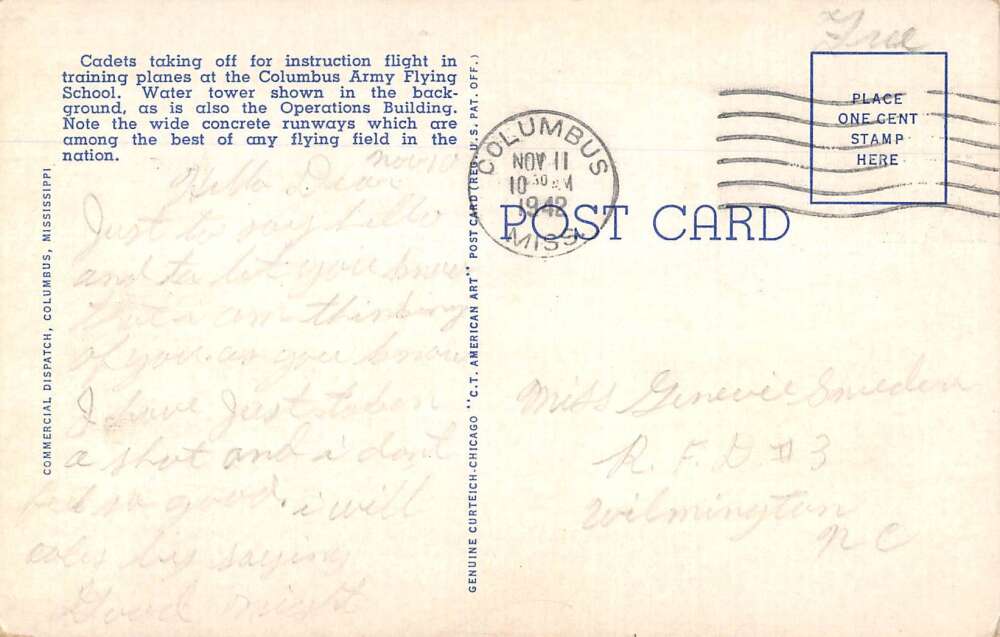 Free
Cadets taking off for instruction flight in
training planes at the Columbus Army Flying
School. Water tower shown in the back-
ground, as is also the Operations Building.
Note the wide concrete runways which are
among the best of any flying field in the
nation.
Nov 10
Hello Dear
Just to say hello
and to let you know
that i am thinking
of you. as you know
I have Just taken
a shot and i don't
feel so good. i will
by saying
Good night
COMMERCIAL DISPATCH, COLUMBUS, MISSISSIPPI
GENUINE CURTEICH-CHICAGO "C.T. AMERICAN ART" POST CARD (REG. U.S. PAT. OFF.)
COLUMBUS
NOV 11
10 30 M
1942
MISS.
PLACE
ONE CENT
STAMP
HERE
POST CARD
Miss Genevie
R. F. D #3
Wilmington
N C